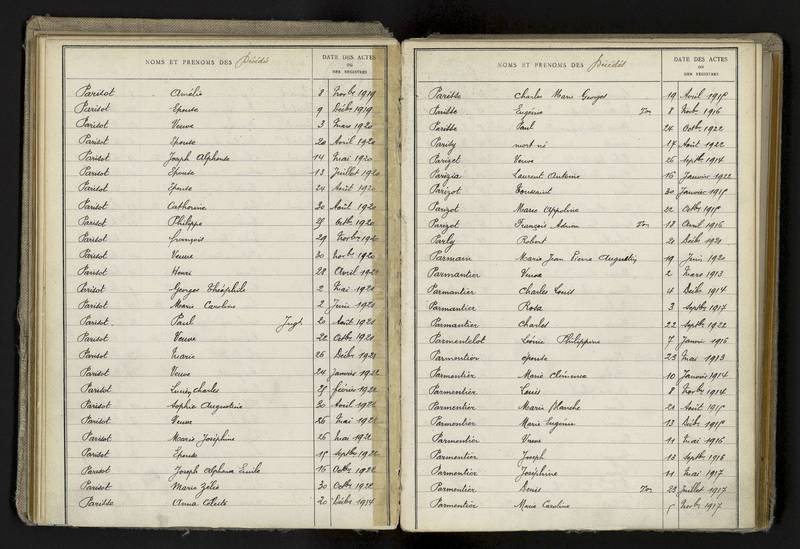 NOMS ET PRENOMS DES Décédés
DATE DES ACTES
OU
DES REGISTRES
Parisot Amélie 8 Novbre 1919
Parisot Epouse 9 Décbre 1919
Parisot Veuve 3 Mars 1920
Parisot Epouse 20 Avril 1920
Parisot Joseph Alphonse 14 Mai 1920
Parisot Epouse 13 Juillet 1920
Parisot Epouse 24 Août 1920
Parisot Catherine 30 Août 1920
Parisot Philippe 25 Octbre 1920
Parisot François 29 Novbre 1920
Parisot Veuve 30 Novbre 1920
Parisot Henri 28 Avril
Parisot Georges Théophile 2 Mai
Parisot Marie Caroline 2 Juin
Parisot Paul Jugt 20 Août
Parisot Veuve 22 Octbre
Parisot Marie 26 Décbre
Parisot Veuve 24 Janvier 1922
Parisot Lucien Charles 25 février 1922
Parisot Sophie Augustine 30 Avril 1922
Parisot Veuve 26 Mai 1922
Parisot Marie Joséphine 26 Mai 1922
Parisot Epouse 15 Septbre 1922
Parisot Joseph Alphonse Emile 16 Octbre 1922
Parisot Marie Zélie 30 Octbre 1922
Paritte Anna 20 Décbre 1914
NOMS ET PRENOMS DES Décédés
DATE DES ACTES
OU
DES REGISTRES
Paritte Charles Marie Georges 19 Avril 1915
Paritte Eugénie Ton 8 Novbre 1916
Paritte Paul 24 Octbre 1922
Parity mort né 17 Août 1922
Parizet Veuve 26 Septbre 1914
Parizia Laurent Antoine 16 Janvier 1922
Parizot Toussaint 30 Janvier 1915
Parizot Marie Appoline 22 Octbre 1915
Parizot François Adrien Ton 18 Avril 1916
Parly Robert 21 Décbre
Parmain Marie Jean Pierre Augustin 19 Juin 1920
Parmantier Veuve 2 Mars 1913
Parmantier Charles Louis 4 Décbre 1914
Parmantier Rosa 3 Septbre 1917
Parmantier Charles 22 Septbre 1922
Parmentelot Léonie Philippine 7 Janvier 1916
Parmentier épouse 23 Mai 1913
Parmentier Marie Clémence 10 Janvier 1914
Parmentier Louis 8 Novbre 1914
Parmentier Marie Blanche 21 Août 1915
Parmentier Marie Eugénie 13 Décbre 1915
Parmentier Veuve 11 Mai 1916
Parmentier Joseph 13 Septbre 1916
Parmentier Joséphine 11 Mai 1917
Parmentier Denise Ton 23 Juillet 1917
Parmentier Marie Caroline 5 Novbre 1917